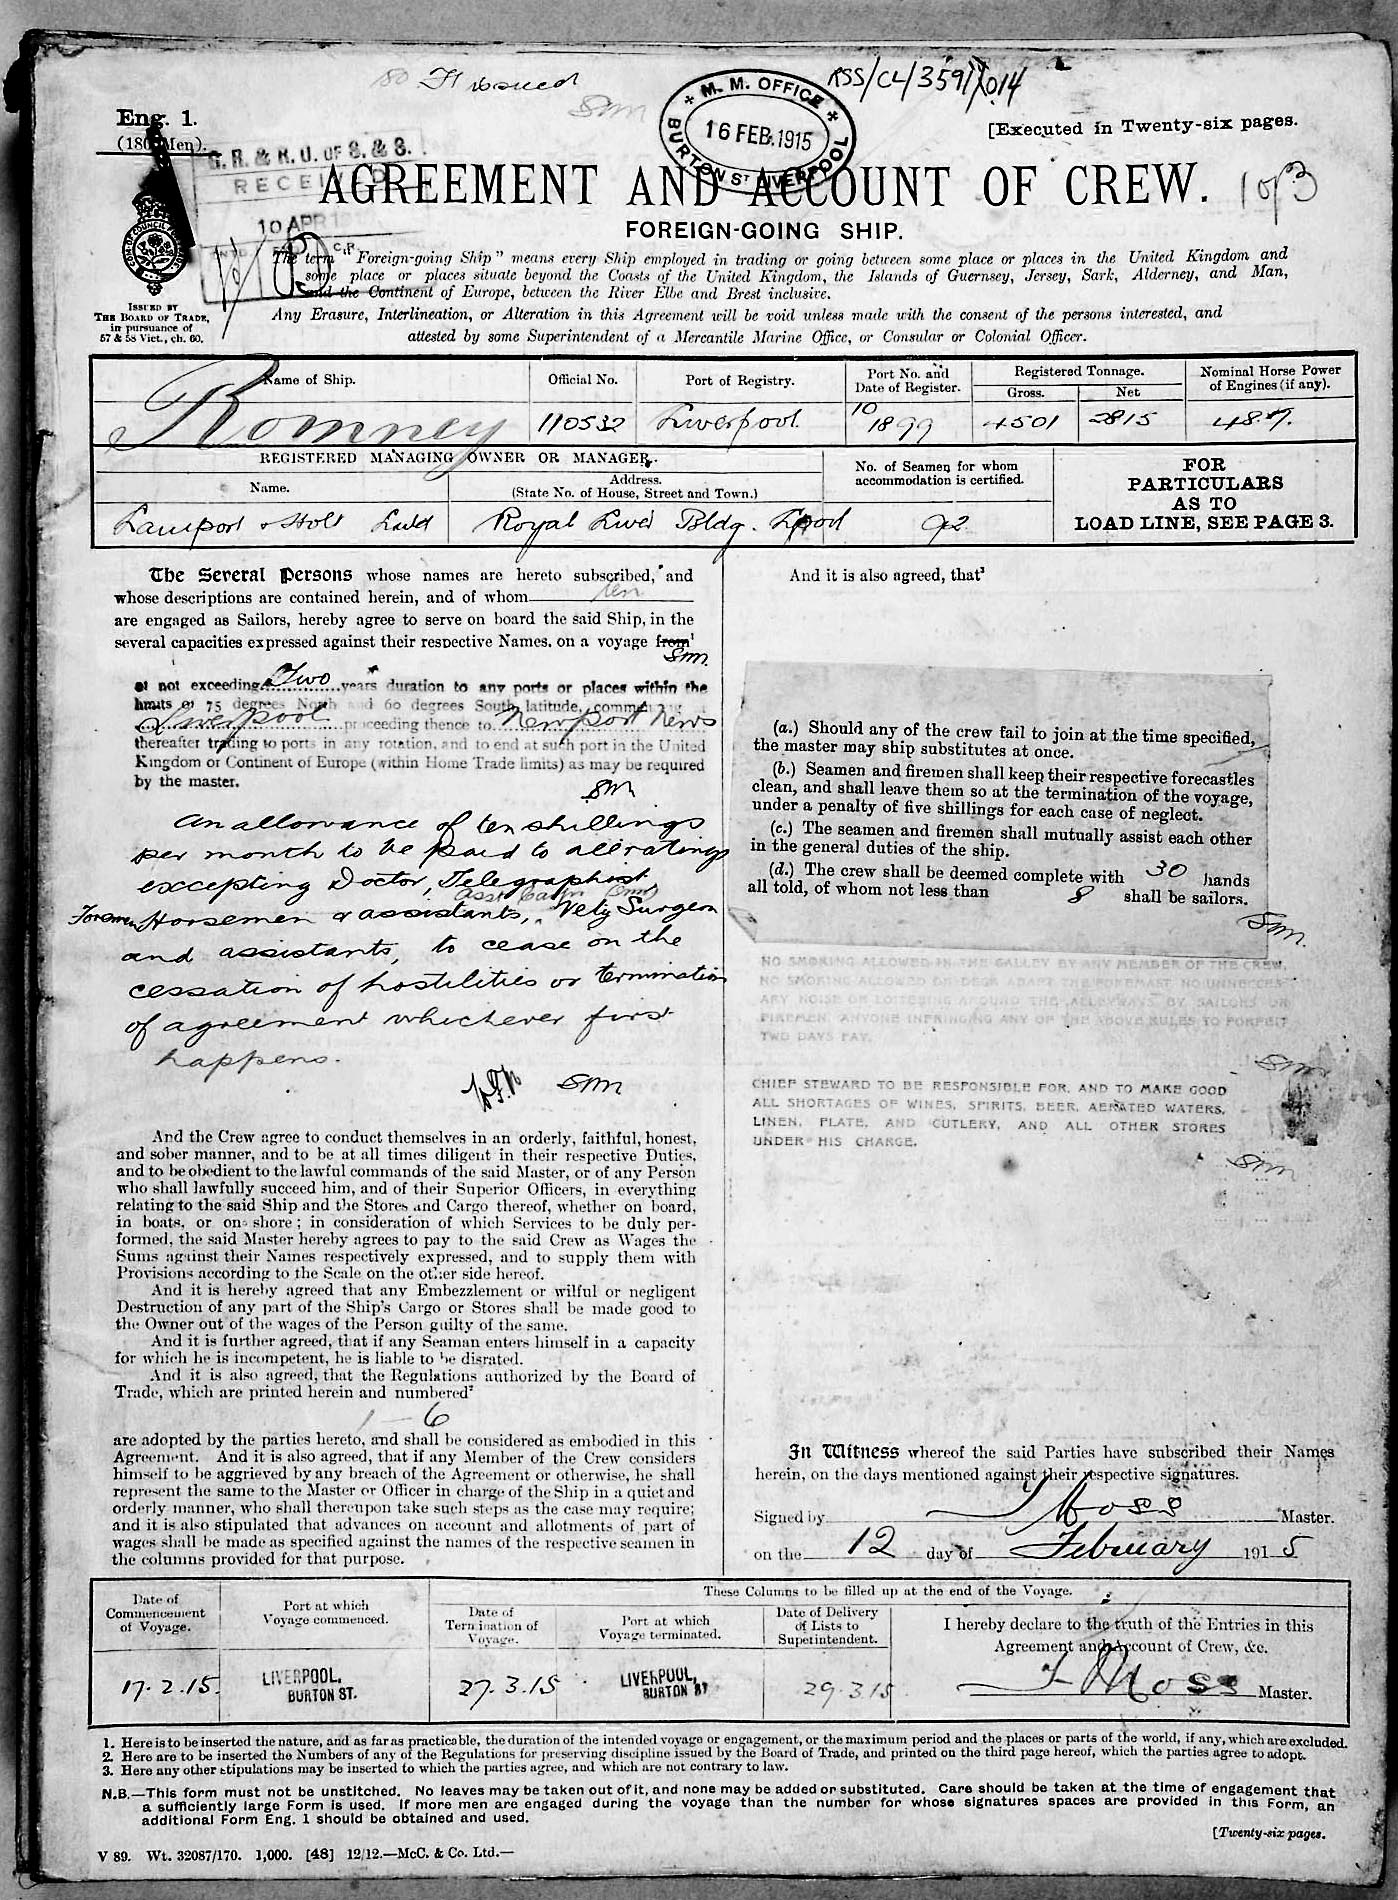 Fl issued
Smm
RSS/CL/3591/014
Eng. 1.
(180 Men).
M. M. OFFICE
16 FEB. 1915
BURTON ST LIVERPOOL
[Executed in Twenty-six pages.
G. R. & R. O. OF S. & S.
RECEIVED
10 APR
AGREEMENT AND ACCOUNT OF CREW.
1 of 3
FOREIGN-GOING SHIP.
The term "Foreign-going Ship" means every Ship employed in trading or going between some place or places in the United Kingdom and
some place or places situate beyond the Coasts of the United Kingdom, the Islands of Guernsey, Jersey, Sark, Alderney, and Man,
and the Continent of Europe, between the River Elbe and Brest inclusive.
Any Erasure, Interlineation, or Alteration in this Agreement will be void unless made with the consent of the persons interested, and
attested by some Superintendent of a Mercantile Marine Office, or Consular or Colonial Officer.
ISSUED BY
THE BOARD OF TRADE,
in pursuance of
57 & 58 Vict., ch. 60.
Name of Ship. Official No. Port of Registry. Port No. and Date of Register. Registered Tonnage. Gross. Net Nominal Horse Power of Engines (if any).
Romney 110532 Liverpool. 10 1899 4501 2815 487.
REGISTERED MANAGING OWNER OR MANAGER.
Name. Address. (State No. of House, Street and Town.) No. of Seamen for whom accommodation is certified.
Lamport & Holt Ltd Royal Liver Bldg. Lpool 92
FOR
PARTICULARS
AS TO
LOAD LINE, SEE PAGE 3.
The Several Persons whose names are hereto subscribed, and
whose descriptions are contained herein, and of whom ten
are engaged as Sailors, hereby agree to serve on board the said Ship, in the
several capacities expressed against their respective Names, on a voyage from¹
Smm.
of not exceeding Two years duration to any ports or places within the
limits of 75 degrees North and 60 degrees South latitude, commencing at
Liverpool proceeding thence to Newport News
thereafter trading to ports in any rotation, and to end at such port in the United
Kingdom or Continent of Europe (within Home Trade limits) as may be required
by the master.
Smm
An allowance of ten shillings
per month to be paid to all ratings
excepting Doctor, Telegraphist
Asst
Foremen Horsemen & assistants, Vety Surgeon
and assistants, to cease on the
cessation of hostilities or termination
of agreement whichever first
happens.
Smm
And the Crew agree to conduct themselves in an orderly, faithful, honest,
and sober manner, and to be at all times diligent in their respective Duties,
and to be obedient to the lawful commands of the said Master, or of any Person
who shall lawfully succeed him, and of their Superior Officers, in everything
relating to the said Ship and the Stores and Cargo thereof, whether on board,
in boats, or on shore; in consideration of which Services to be duly per-
formed, the said Master hereby agrees to pay to the said Crew as Wages the
Sums against their Names respectively expressed, and to supply them with
Provisions according to the Scale on the other side hereof.
And it is hereby agreed that any Embezzlement or wilful or negligent
Destruction of any part of the Ship's Cargo or Stores shall be made good to
the Owner out of the wages of the Person guilty of the same.
And it is further agreed, that if any Seaman enters himself in a capacity
for which he is incompetent, he is liable to be disrated.
And it is also agreed, that the Regulations authorized by the Board of
Trade, which are printed herein and numbered²
1 – 6
are adopted by the parties hereto, and shall be considered as embodied in this
Agreement. And it is also agreed, that if any Member of the Crew considers
himself to be aggrieved by any breach of the Agreement or otherwise, he shall
represent the same to the Master or Officer in charge of the Ship in a quiet and
orderly manner, who shall thereupon take such steps as the case may require;
and it is also stipulated that advances on account and allotments of part of
wages shall be made as specified against the names of the respective seamen in
the columns provided for that purpose.
And it is also agreed, that³
(a.) Should any of the crew fail to join at the time specified,
the master may ship substitutes at once.
(b.) Seamen and firemen shall keep their respective forecastles
clean, and shall leave them so at the termination of the voyage,
under a penalty of five shillings for each case of neglect.
(c.) The seamen and firemen shall mutually assist each other
in the general duties of the ship.
(d.) The crew shall be deemed complete with 30 hands
all told, of whom not less than 8 shall be sailors.
Smm.
NO SMOKING ALLOWED IN THE GALLEY BY ANY MEMBER OF THE CREW.
NO SMOKING ALLOWED ON DECK ABAFT THE FOREMAST NO UNNECESS-
ARY NOISE OR LOITERING AROUND THE ALLEYWAYS BY SAILORS OR
FIREMEN. ANYONE INFRINGING ANY OF THE ABOVE RULES TO FORFEIT
TWO DAYS PAY.
Smm
CHIEF STEWARD TO BE RESPONSIBLE FOR, AND TO MAKE GOOD
ALL SHORTAGES OF WINES, SPIRITS, BEER, AERATED WATERS,
LINEN, PLATE, AND CUTLERY, AND ALL OTHER STORES
UNDER HIS CHARGE.
Smm
In Witness whereof the said Parties have subscribed their Names
herein, on the days mentioned against their respective signatures.
Signed by J Moss Master.
on the 12 day of February 1915
These Columns to be filled up at the end of the Voyage.
Date of Commencement of Voyage. Port at which Voyage commenced. Date of Termination of Voyage. Port at which Voyage terminated. Date of Delivery of Lists to Superintendent. I hereby declare to the truth of the Entries in this Agreement and Account of Crew, &c.
17.2.15. LIVERPOOL, BURTON ST. 27.3.15 LIVERPOOL, BURTON ST 29.3.15 J Moss Master.
1. Here is to be inserted the nature, and as far as practicable, the duration of the intended voyage or engagement, or the maximum period and the places or parts of the world, if any, which are excluded.
2. Here are to be inserted the Numbers of any of the Regulations for preserving discipline issued by the Board of Trade, and printed on the third page hereof, which the parties agree to adopt.
3. Here any other stipulations may be inserted to which the parties agree, and which are not contrary to law.
N.B.—This form must not be unstitched. No leaves may be taken out of it, and none may be added or substituted. Care should be taken at the time of engagement that
a sufficiently large Form is used. If more men are engaged during the voyage than the number for whose signatures spaces are provided in this Form, an
additional Form Eng. 1 should be obtained and used.
[Twenty-six pages.
V 89. Wt. 32087/170. 1,000. [48] 12/12.—McC. & Co. Ltd.—